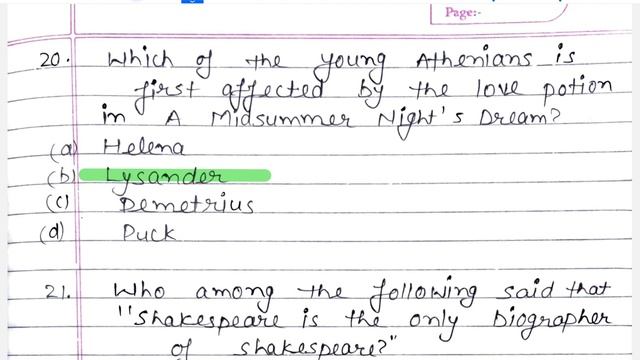 Page:-
20. Which of the young Athenians is
first affected by the love potion
in A Midsummer Night's Dream?
(a) Helena
(b) Lysander
(c) Demetrius
(d) Puck
21. Who among the following said that
"Shakespeare is the only biographer
of Shakespeare?"